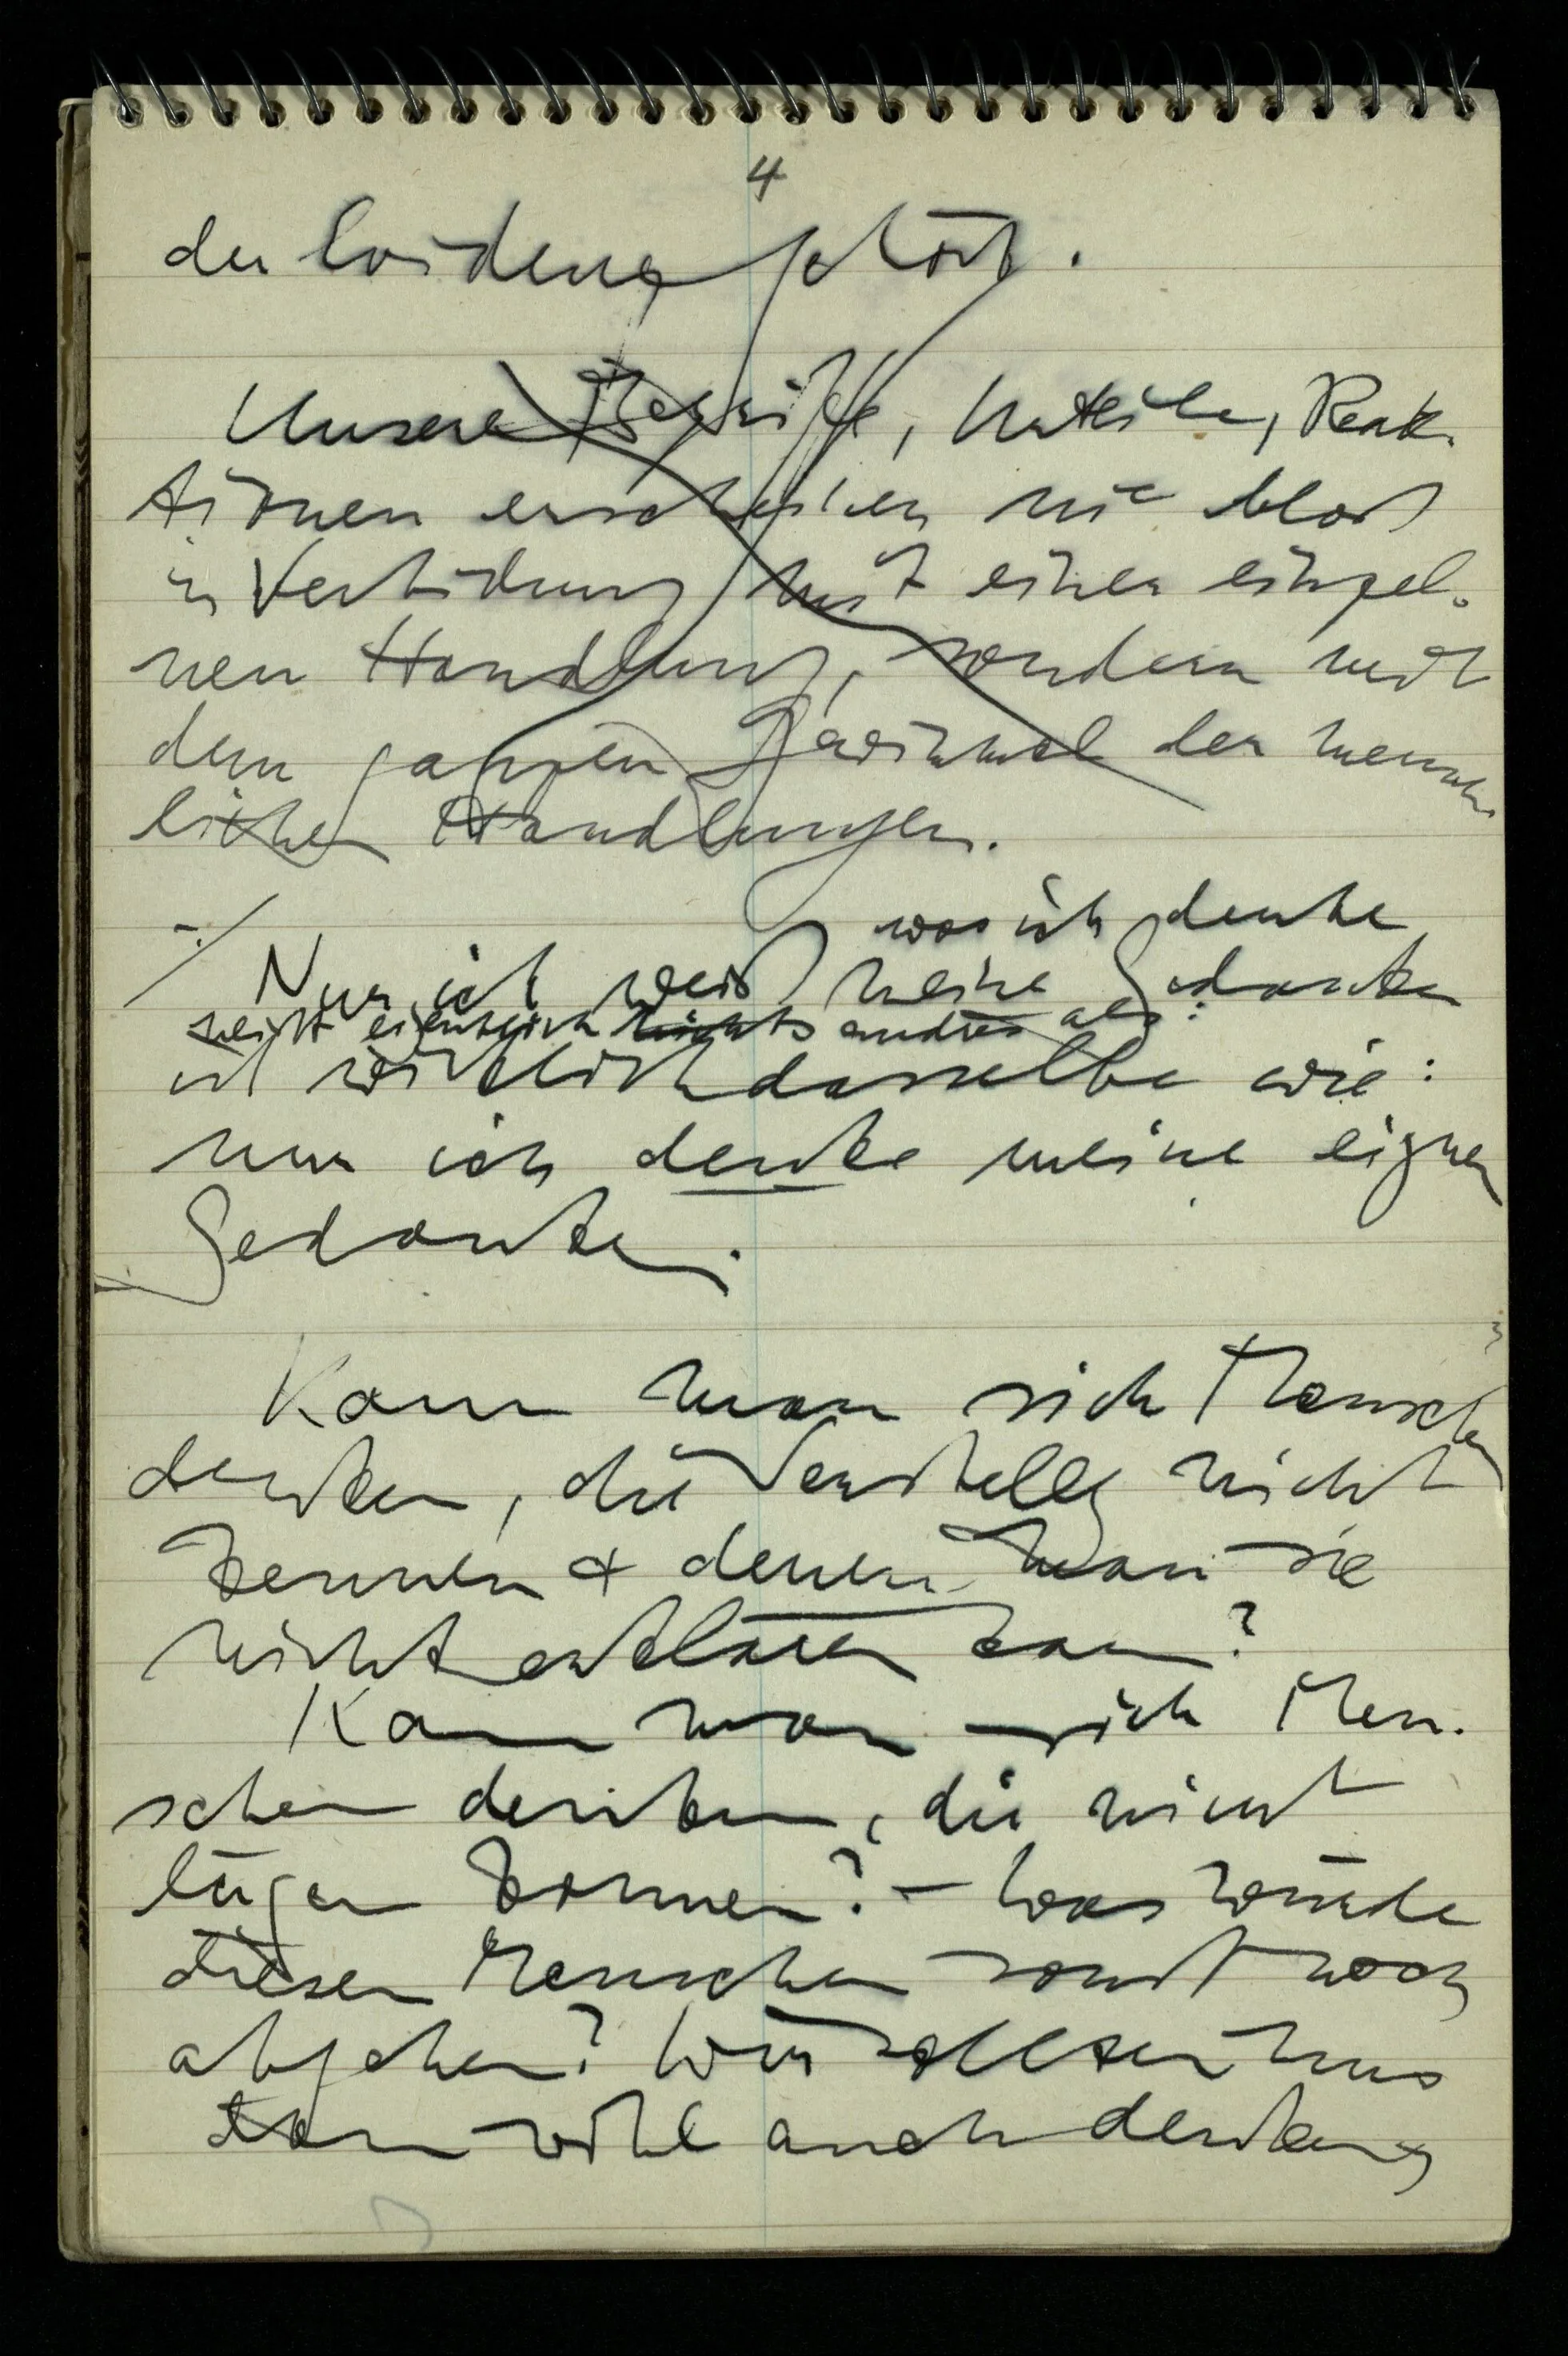 4
der Evidenz gehört.
Unsere Begriffe, Urteile, Reak-
tionen erscheinen nie bloß
in Verbindung mit einer einzel-
nen Handlung, sondern mit
dem ganzen Gewimmel der mensch-
lichen Handlungen.
was ich denke
Nur ich weiß meine Gedanken
heißt eigentlich nichts andres als:
ist wirklich dasselbe wie:
nur ich denke meine eignen
Gedanken.
Kann man sich Menschen
denken, die Verstellg nicht
kennen & denen man sie
nicht erklären kann?
Kann man sich Men-
schen denken, die nicht
lügen können? – Was würde
diesen Menschen sonst noch
abgehen? Wir sollten uns
dann wohl auch denken,